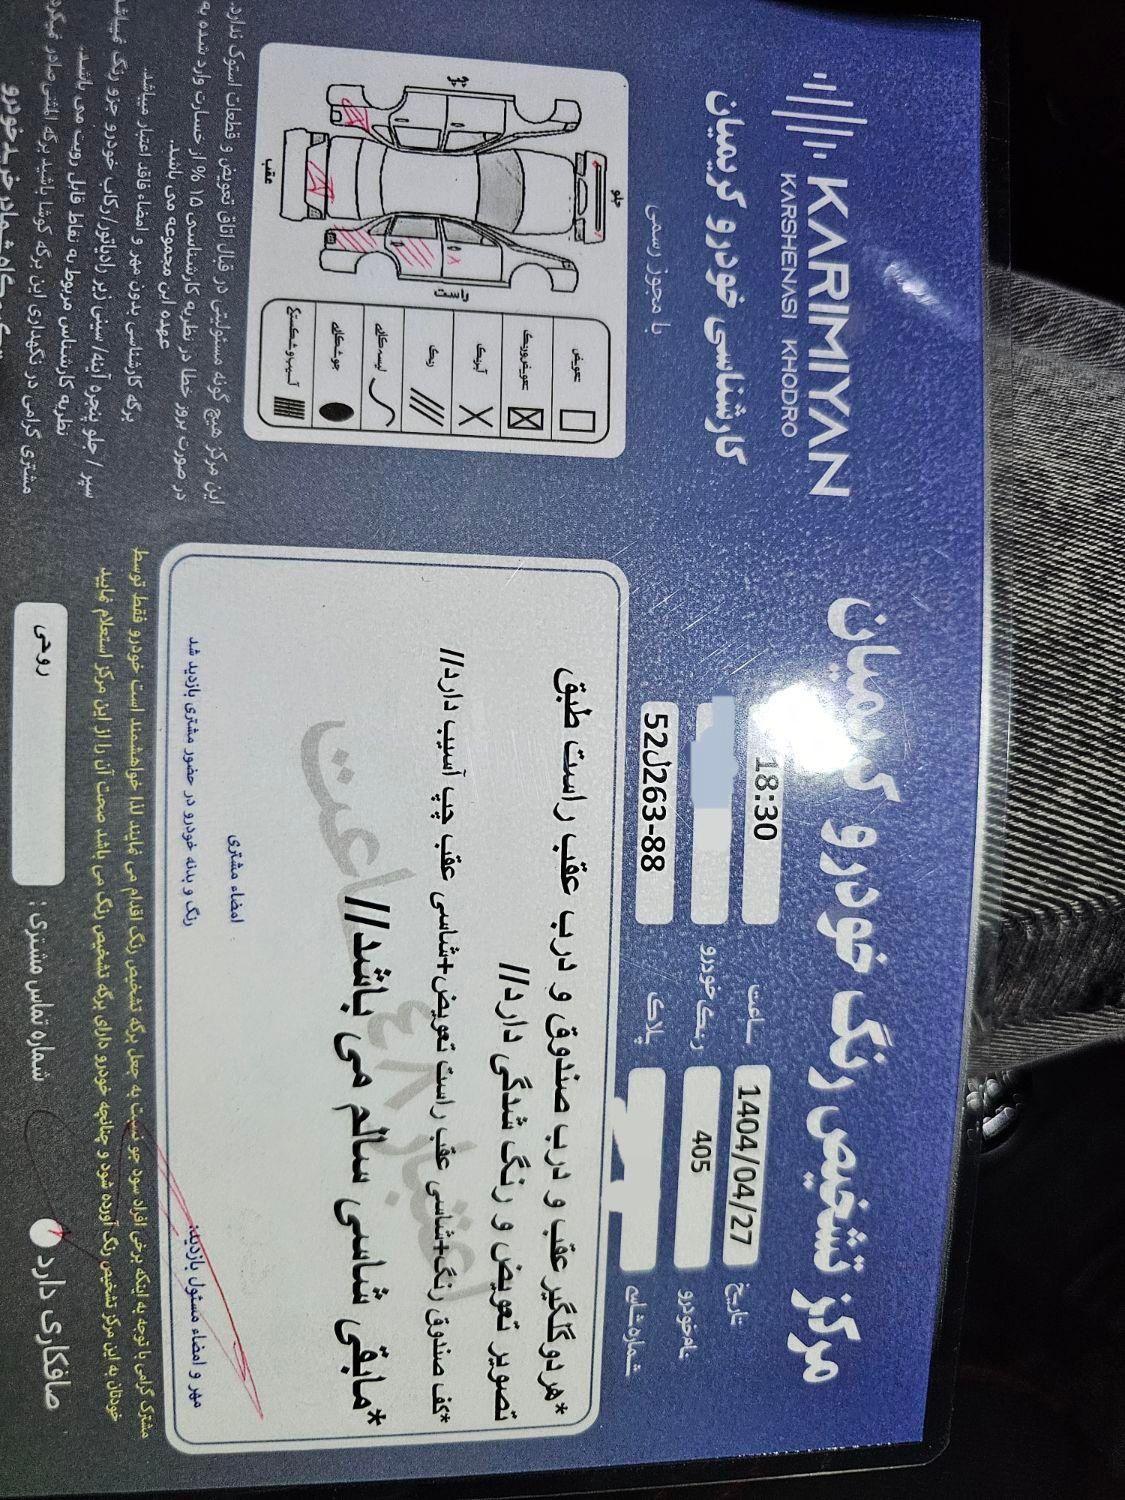 KARIMIYAN
KARSHENASI KHODRO
کارشناسی خودرو کریمیان
با مجوز رسمی
مرکز تشخیص رنگ خودرو کریمیان
تاریخ
1404/04/27
ساعت
18:30
نام خودرو
405
رنگ خودرو
شماره شاسی
پلاک
52ل263-88
جلو
عقب
راست
تعویض
تعویض و رنگ
آبرنگ
رنگ
لیسه گیری
جوشکاری
آسیب و شکستگی
*هر دو گلگیر عقب و درب صندوق و درب عقب راست طبق
تصویر تعویض و رنگ شدگی دارد//
*کف صندوق رنگ+شاسی عقب راست تعویض+شاسی عقب چپ آسیب دارد//
*مابقی شاسی سالم می باشد//
اعتبار ۴۸ ساعت
امضاء مشتری
رنگ و بدنه خودرو در حضور مشتری بازدید شد
مهر و امضاء مسئول بازدید:
این مرکز هیچ گونه مسئولیتی در قبال اتاق تعویض و قطعات استوک ندارد.
در صورت بروز خطا در نظریه کارشناسی ۱۵ % از خسارت وارد شده به
عهده این مجموعه می باشد.
برگه کارشناسی بدون مهر و امضاء فاقد اعتبار میباشد.
سپر / جلو پنجره آینه/ سینی زیر رادیاتور/رکاب خودرو جزو رنگ نمیباشد
نظریه کارشناس مربوط به نقاط قابل رویت می باشد.
مشتری گرامی در نگهداری این برگه کوشا باشید برگه المثنی صادر نمیگردد
مشتری گرامی با توجه به اینکه برخی افراد سود جو نسبت به جعل برگه تشخیص رنگ اقدام می نمایند لذا خواهشمند است خودرو فقط توسط
خودتان به این مرکز تشخیص رنگ آورده شود و چنانچه خودرو دارای برگه تشخیص رنگ می باشد صحت آن را از این مرکز استعلام نمایید
صافکاری دارد
شماره تماس مشتری :
روحی